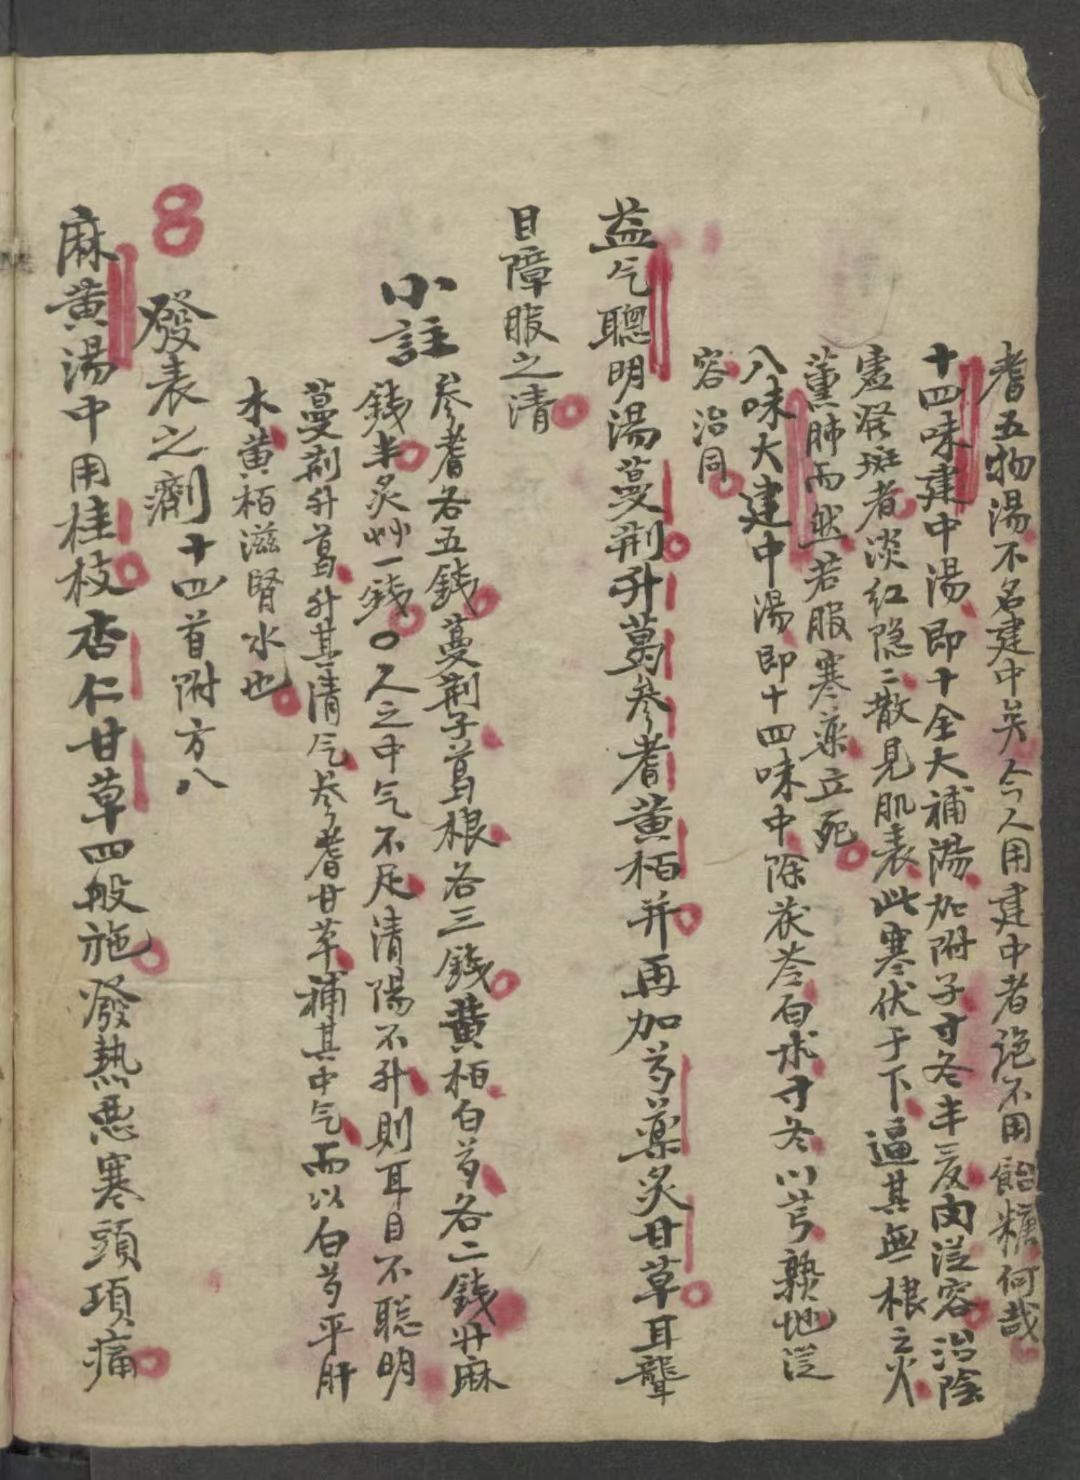 耆五物湯不名建中矣今人用建中者絶不用飴糖何哉
十四味建中湯即十全大補湯加附子寸冬半夏肉苁容治陰
虛発斑者淡红隐〻散見肌表此寒伏于下逼其無根之火
薰肺而然若服寒薬立死
八味大建中湯即十四味中除茯苓白术寸冬川芎熟地苁
容治同
益气聰明湯蔓荆升葛参耆黄栢并再加芍藥炙甘草耳聾
目障服之清
小註
参耆各五錢蔓荆子葛根各三錢黄栢白芍各二錢升麻
錢半炙艸一錢〇人之中气不足清陽不升則耳目不聡明
蔓荆升葛升其清气参耆甘草補其中气而以白芍平肝
木黄栢滋腎水也
8
發表之劑十四首附方八
麻黄湯中用桂枝杏仁甘草四般施發熱惡寒頭項痛